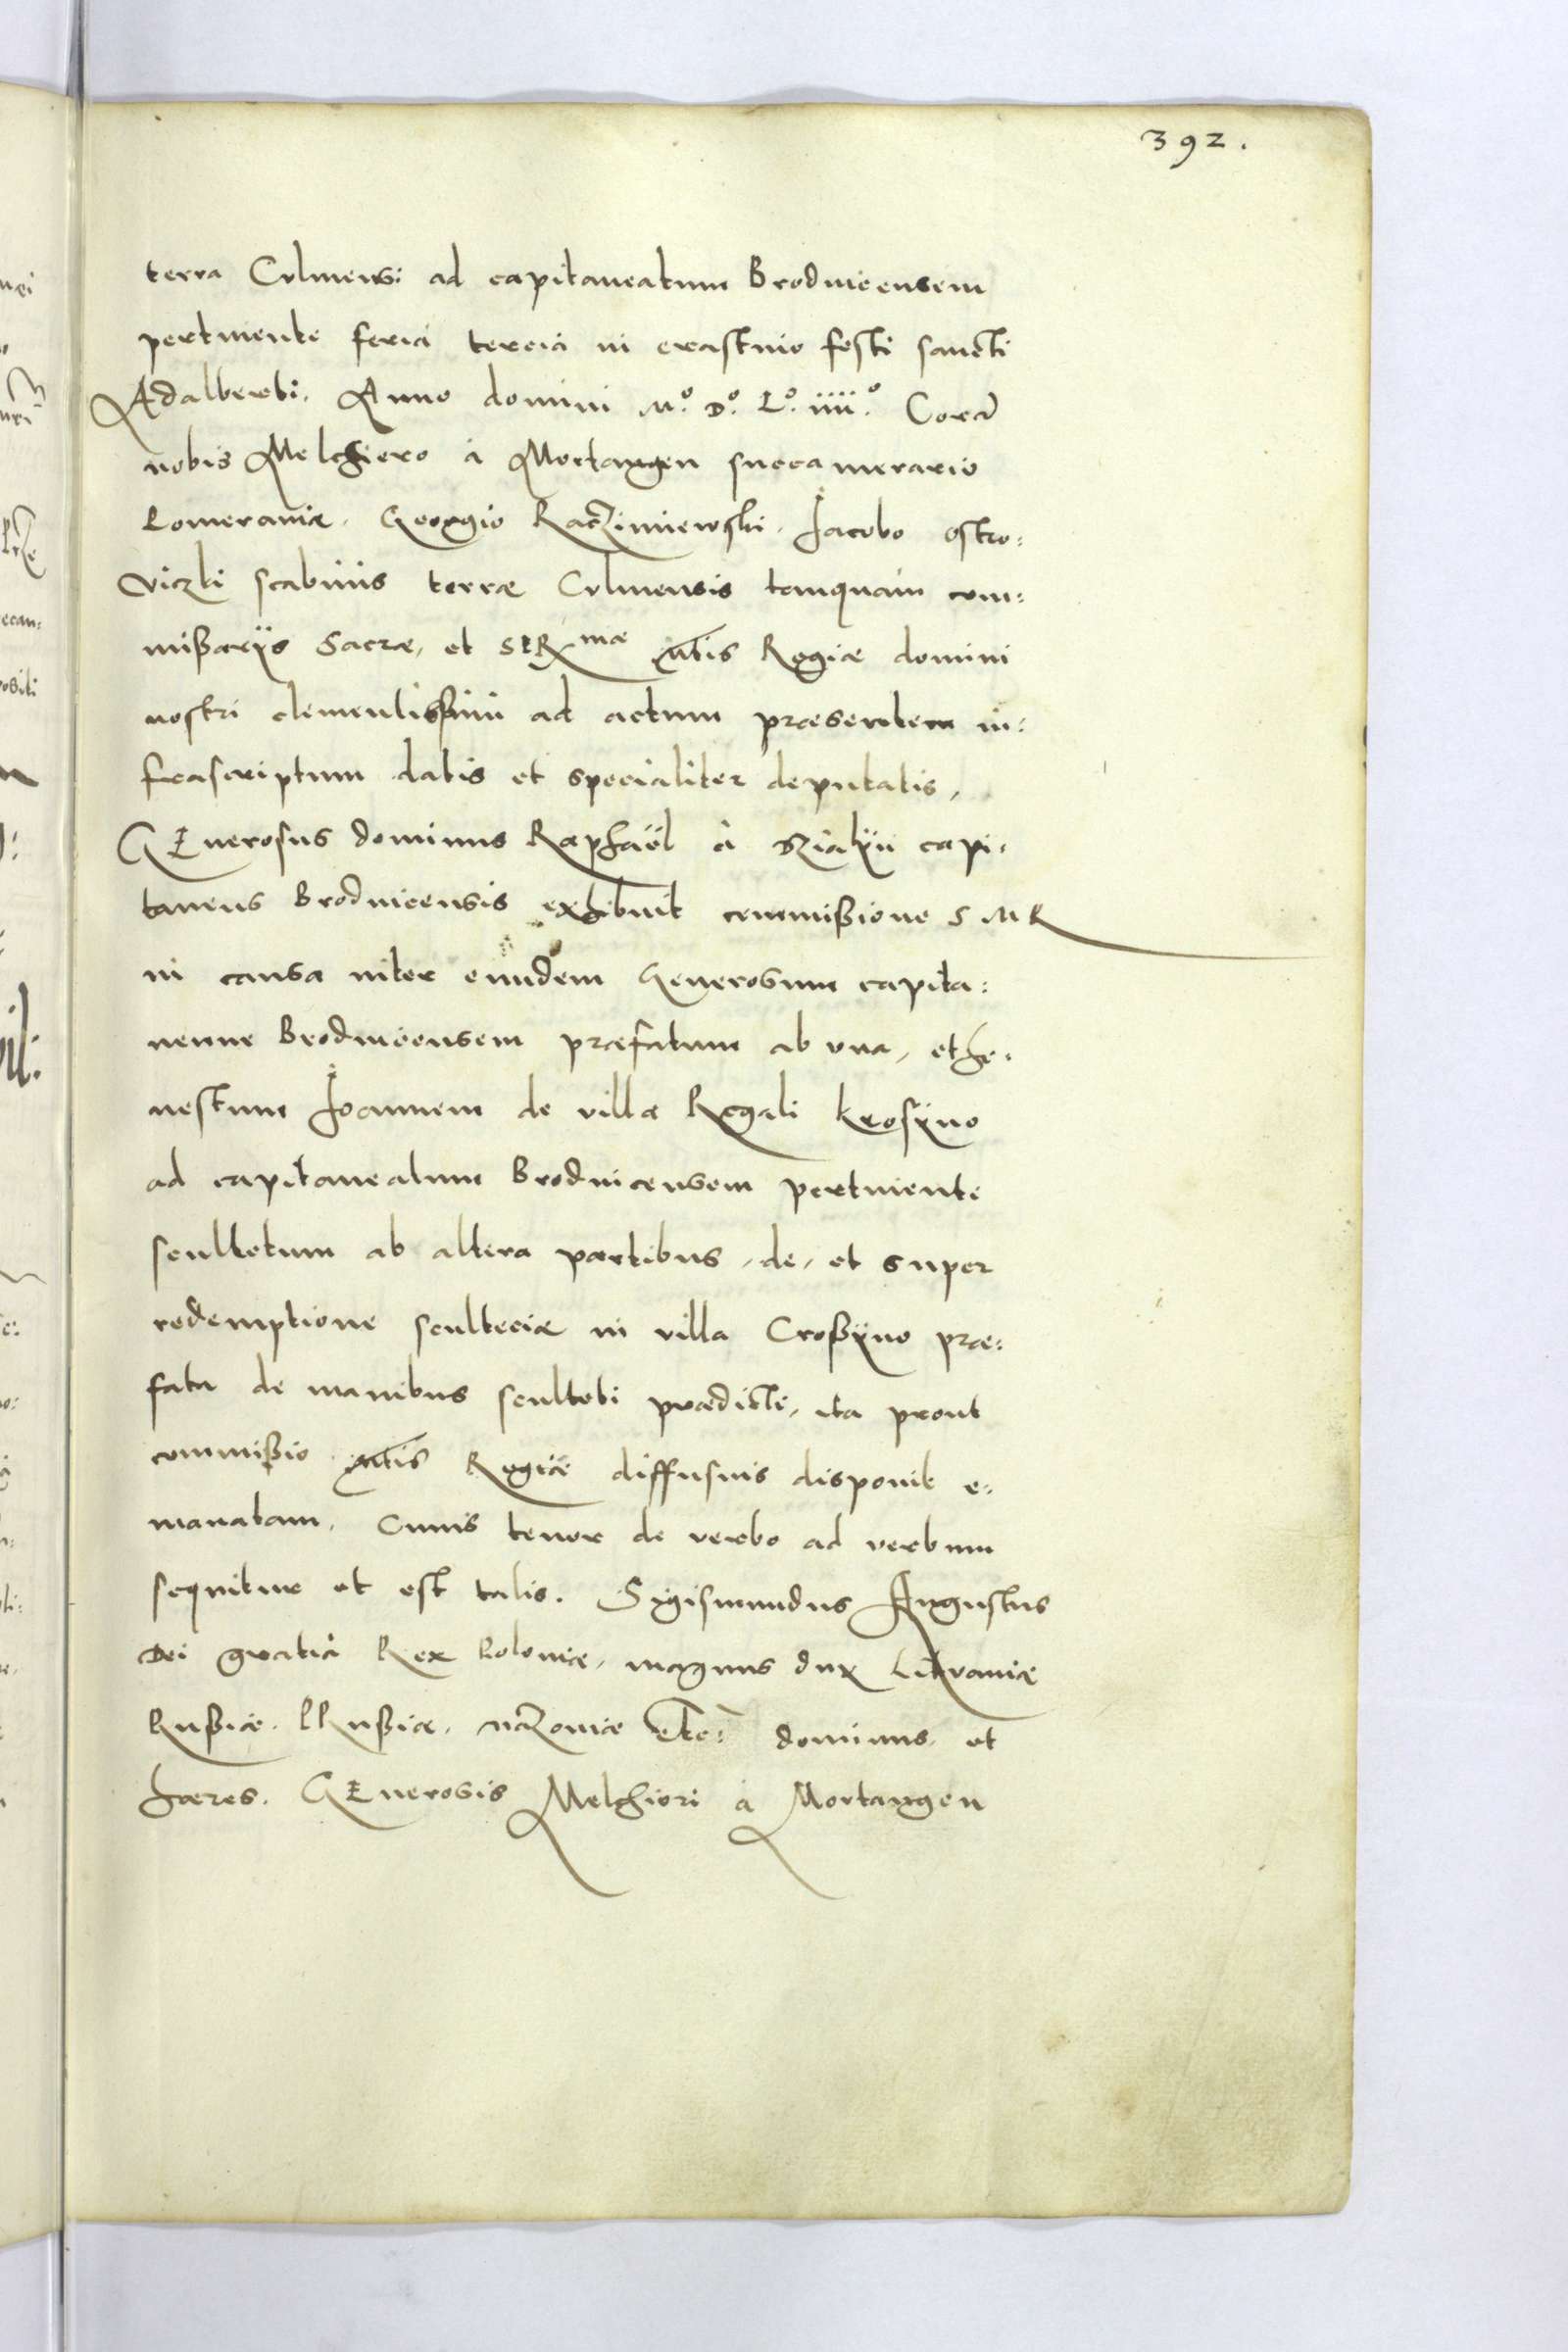 392.
terra Culmensi ad capitaneatum Brodnicensem
pertinente feria tercia in crastino festi sancti
Adalberti. Anno domini M.º D.º L.º iiii.º Corã
nobis Melchiero à Mortangen succamerario
Pomeraniæ. Georgio Raczimiewski. Jacobo Ostro:
viczki scabinis terræ Culmensis tanquam com:
mißarijs Sacræ, et SERmæ Mtis Regiæ domini
nostri clementissimi ad actum præsentem in:
frascriptum datis et specialiter deputatis,
GEnerosus dominus Raphaël à Dzialyn capi:
taneus Brodnicensis exhibuit commißione S M R
in causa inter eundem Generosum capita:
neum Brodnicensem præfatum ab una, et ho:
nestum Joannem de villa Regali Krosyno
ad capitaneatum Brodnicensem pertinente
scultetum ab altera partibus, de, et super
redemptione sculteciæ in villa Croßyno præ:
fata de manibus sculteti prædicti, ita prout
commißio Mtis Regiæ diffusius disponit e:
manatam. Cuius tenor de verbo ad verbum
sequitur et est talis. Sigismundus Augustus
Dei gratia Rex Poloniæ, magnus dux Lituaniæ
Rußiæ. PRußiæ. Mazoniæ etc: dominus et
hæres. GEnerosis Melchiori à Mortangen